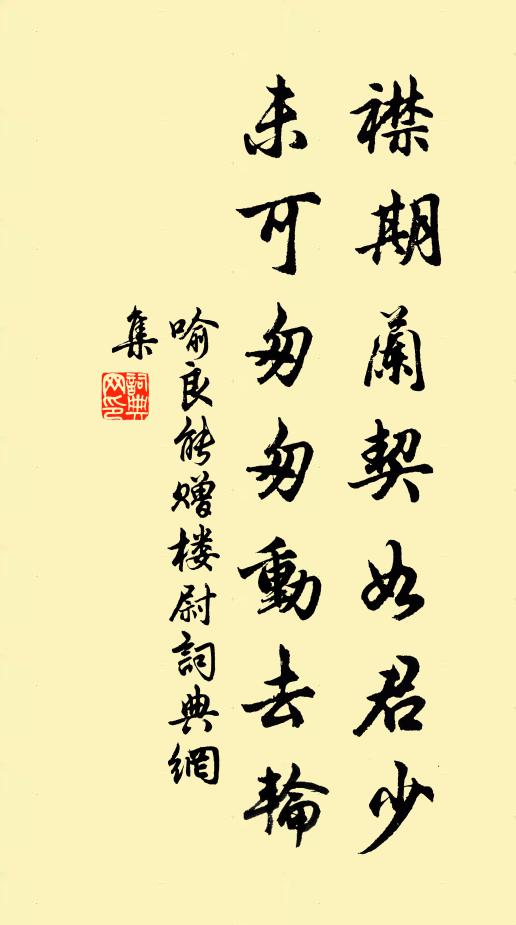 襟期蘭契如君少
未可匆匆動去輪
喻良能贈楼尉詞典網
集
詞典
网印